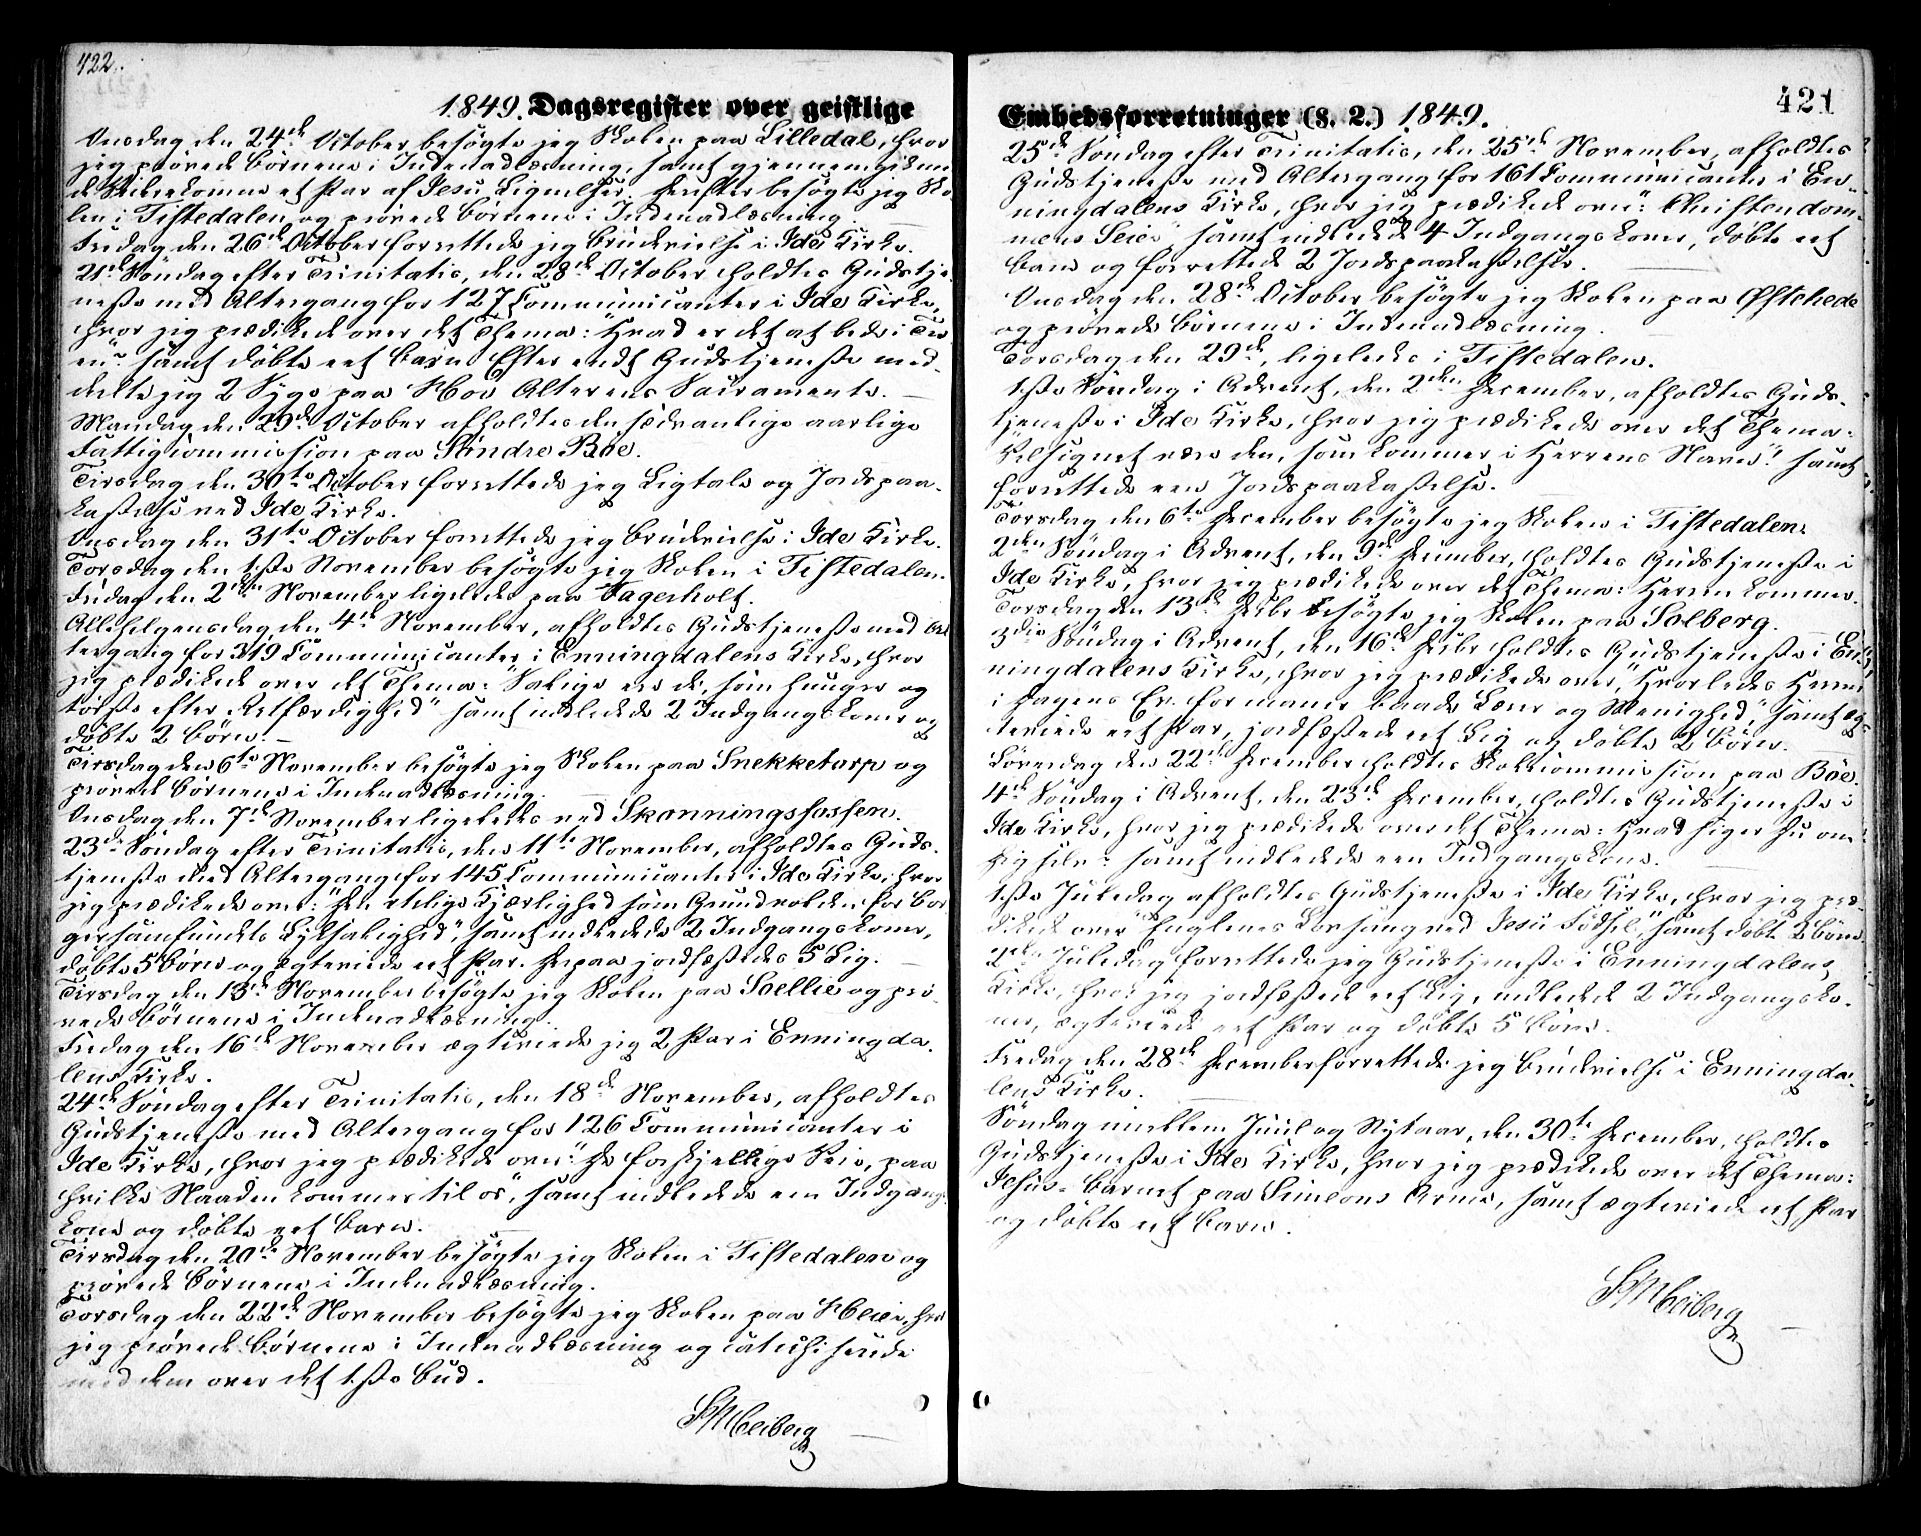 422.
1849. Dagsregister over geistlige
Onsdag den 24de October besøgte jeg Skolen paa Lilledal, hvor
jeg prøvede Børnene i Indenadlæsning, samt gjennemgik med
de Videre komne et Par af Jesu Lignelser. Derefter besøgte jeg Sko-
len i Tistedalen og prøvede Børnene i Indenadlæsning.
Fredag den 26de October forrettede jeg Brudevielse i Ide Kirke.
21de Søndag efter Trinitatis, den 28de October holdtes Gudstje-
neste med Altergang for 127 Communicanter i Ide Kirke,
hvor jeg prædikede over det Thema: "Hvad er det at bede i Tro-
en" samt døbte eet Barn. Efter endt Gudstjeneste med-
delte jeg 2 Syge paa Hov Alterens Sacramente.
Mandag den 29de October afholdtes den sædvanlige aarlige
Fattigcommission paa Søndre Bøe.
Tirsdag den 30te October forrettede jeg Ligtale og Jordspaa-
kastelse ved Ide Kirke.
Onsdag den 31te October forrettede jeg Brudevielse i Ide Kirke.
Torsdag den 1ste November besøgte jeg Skolen i Tistedalen.
Fredag den 2den November ligeledes paa Fagerholt.
Allehelgensdag, den 4de November, afholdtes Gudstjeneste med Al-
tergang for 319 Communicanter i Enningdalens Kirke, hvor
jeg prædikede over det Thema: "Salige ere de, som hungre og
tørste efter Retfærdighed" samt indledede 2 Indgangskoner og
døbte 2 Børn.
Tirsdag den 6te November besøgte jeg Skolen paa Snekketorp og
prøvede Børnene i Indenadlæsning.
Onsdag den 7de November ligeledes ved Skonningsfossen.
23de Søndag efter Trinitatis, den 11te November, afholdtes Guds-
tjeneste med Altergang for 145 Communicanter i Ide Kirke, hvor
jeg prædikede over: "Den christelige Kjærlighed som Grundvolden for Bor-
gersamfundets Lyksalighed", samt indledede 2 Indgangskoner,
døbte 5 Børn og ægteviede eet Par. Derpaa jordfæstedes 5 Lig.
Tirsdag den 13de November besøgte jeg Skolen paa Soellie og prø-
vede Børnene i Indenadlæsning.
Fredag den 16de November ægteviede jeg 2 Par i Enningda-
lens Kirke.
24de Søndag efter Trinitatis, den 18de November, afholdtes
Gudstjeneste med Altergang for 126 Communicanter i
Ide Kirke, hvor jeg prædikede over: "De forskjellige Veie, paa
hvilke Naaden kommer til os", samt indledede een Indgangs-
kone og døbte eet Barn.
Tirsdag den 20de November besøgte jeg Skolen i Tistedalen og
prøvede Børnene i Indenadlæsning.
Torsdag den 22de November besøgte jeg Skolen paa Heie, hvor
jeg prøvede Børnene i Indenadlæsning og catechiserede
med dem over det 1ste Bud.
Heiberg
421
Embedsforretninger (S. 2.) 1849.
25de Søndag efter Trinitatis, den 25de November, afholdtes
Gudstjeneste med Altergang for 161 Communicanter i En-
ningdalens Kirke, hvor jeg prædikede over: "Christendom-
mens Seier", samt indledede 4 Indgangskoner, døbte eet
Barn og forrettede 2 Jordspaakastelser.
Onsdag den 28de October besøgte jeg Skolen paa Østehede
og prøvede Børnene i Indenadlæsning.
Torsdag den 29de ligeledes i Tistedalen.
1ste Søndag i Advent, den 2den December, afholdtes Guds-
tjeneste i Ide Kirke, hvor jeg prædikede over det Thema:
"Velsignet være den, som kommer i Herrens Navn!" samt
forrettede een Jordspaakastelse.
Torsdag den 6te December besøgte jeg Skolen i Tistedalen.
2den Søndag i Advent, den 9de December, holdtes Gudstjeneste i
Ide Kirke, hvor jeg prædikede over det Thema: Herren kommer.
Torsdag den 13de Decbr besøgte jeg Skolen paa Solberg.
3die Søndag i Advent, den 16de Decbr holdtes Gudstjeneste i En-
ningdalens Kirke, hvor jeg prædikede over, "Hvorledes Herren
i Dagens Ev. formaner baade Lærer og Menighed", samt æg-
teviede eet Par, jordfæstede eet Lig og døbte 2 Børn.
Løverdag den 22de December holdtes Skolecommission paa Bøe.
4de Søndag i Advent, den 23de December, holdtes Gudstjeneste i
Ide Kirke, hvor jeg prædikede over det Thema: Hvad siger Du om
Dig selv? samt indledede een Indgangskone.
1ste Juledag afholdtes Gudstjeneste i Ide Kirke, hvor jeg præ-
dikede over "Englenes Lovsang ved Jesu Fødsel", samt døbte 2 Børn.
2den Juledag forrettede jeg Gudstjeneste i Enningdalens
Kirke, hvor jeg jordfæstede eet Lig, indledede 2 Indgangsko-
ner, ægteviede eet Par og døbte 5 Børn.
Fredag den 28de December forrettede jeg Brudevielse i Enningda-
lens Kirke.
Søndag mellem Juul og Nytaar, den 30te December, holdtes
Gudstjeneste i Ide Kirke, hvor jeg prædikede over det Thema:
Jesus-Barnet paa Simeons Arme, samt ægteviede eet Par
og døbte eet Barn.
Heiberg